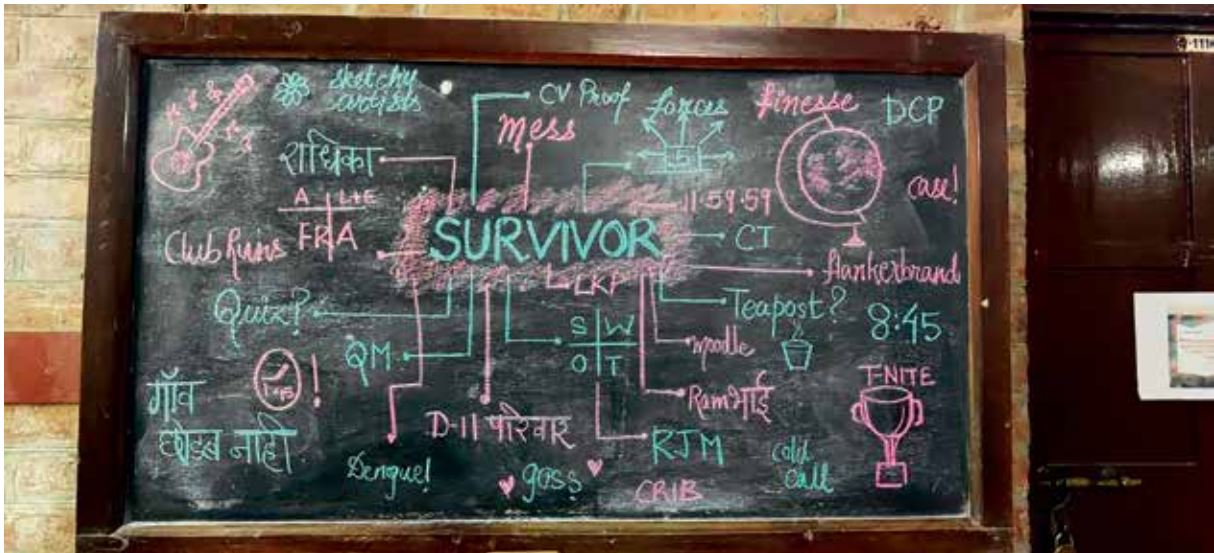 sketchy
artists
CV Proof
forces
finesse
DCP
Mess
राधिका
case!
A L+E
FRA
11:59:59
SURVIVOR
CT
Club Ruins
Hankerbrand
LKP
Quiz?
Teapost?
8:45
S W
O T
QM
moodle
T-NITE
गाँव
छोडब नाही
Ramभाई
D-11 परिवार
RJM
cold
call
Dengue!
goss
CRIB